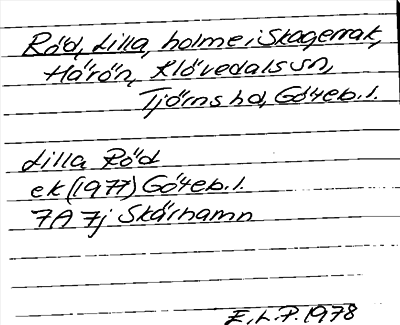 Röd, Lilla, holme i Skagerrak,
Härön, Klövedals sn,
Tjörns hd, Göteb. l.
Lilla Röd
ek (1977) Göteb. l.
7A 7j Skärhamn
E. L. P. 1978